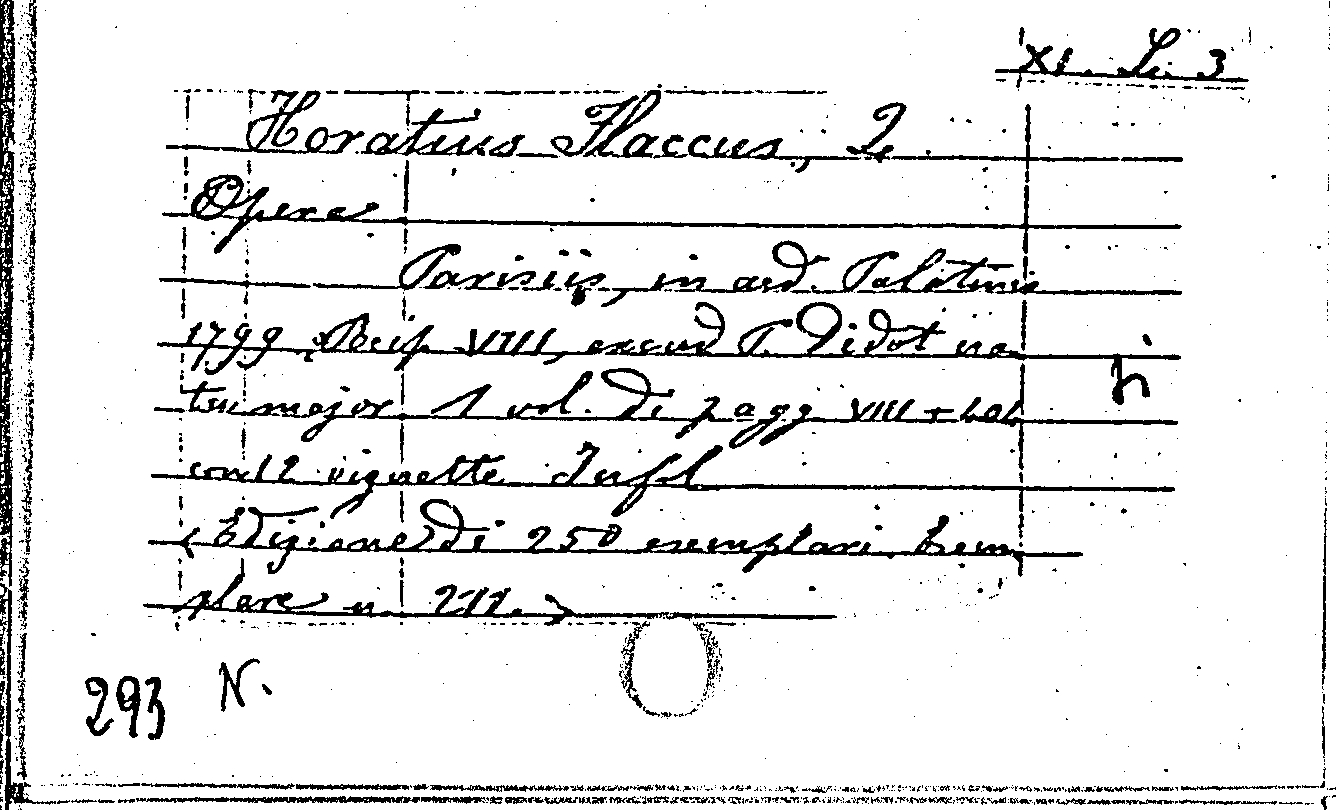 XI. Li. 3
Horatius Flaccus, Q.
Opera
Parisiis, in aed. Palatinis
1799, Reip VIII, excud P. Didot na-
tu major 1 vol. di pagg VIII +
con 12 vignette In fol
(Edizione di 250 esemplari. Esem
plare n. 211.)
293 N.